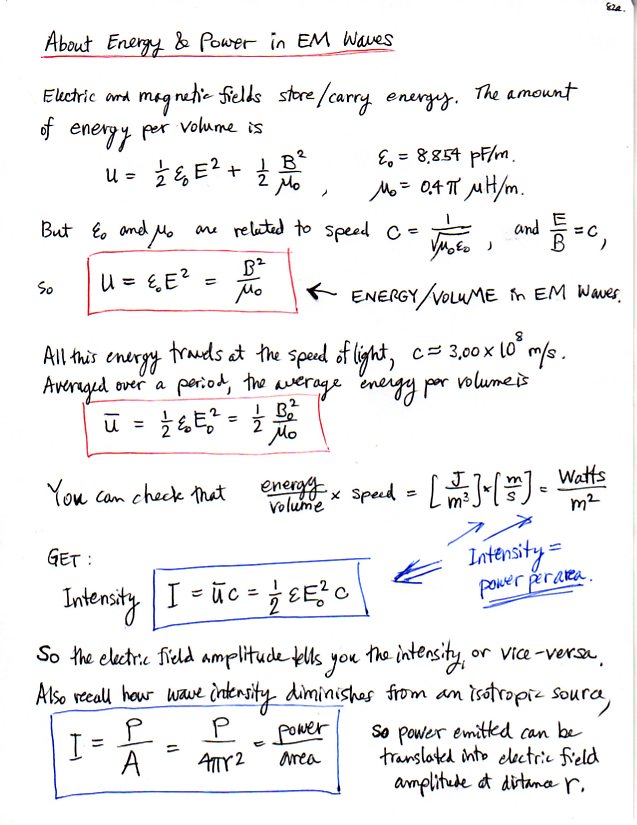 82a.
About Energy & Power in EM Waves
Electric and magnetic fields store/carry energy. The amount
of energy per volume is
u = 1/2 ε₀E² + 1/2 B²/μ₀ , ε₀ = 8.854 pF/m.
μ₀ = 0.4π μH/m.
But ε₀ and μ₀ are related to speed c = 1/√μ₀ε₀ , and E/B = c,
so u = ε₀E² = B²/μ₀ ← ENERGY/VOLUME in EM Waves.
All this energy travels at the speed of light, c ≈ 3.00 x 10⁸ m/s.
Averaged over a period, the average energy per volume is
ū = 1/2 ε₀E₀² = 1/2 B₀²/μ₀
You can check that energy/volume x speed = [J/m³]x[m/s] = Watts/m²
GET :
Intensity =
power per area.
Intensity I = ūc = 1/2 εE₀² c
So the electric field amplitude tells you the intensity, or vice-versa.
Also recall how wave intensity diminishes from an isotropic source,
I = P/A = P/4πr² = power/area
So power emitted can be
translated into electric field
amplitude at distance r.